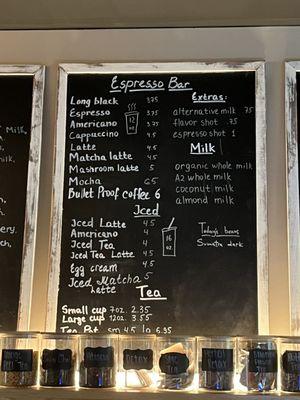 Espresso Bar
Long black 3.75
Espresso 3.75
Americano 3.75
Cappuccino 4.5
Latte 4.5
Matcha latte 4.5
Mashroom latte 5
Mocha 6.5
Bullet Proof coffee 6
12 oz
Iced
Iced Latte 4.5
Americano 4
Iced Tea 4
Iced Tea Latte 4.5
Egg cream 4.5
Iced Matcha 5
Latte
16 oz
Tea
Small cup 7oz. 2.35
Large cup 12oz. 3.55
Tea Pot sm 4.5 lg 6.95
Extras:
alternative milk .75
flavor shot .75
espresso shot 1
Milk
organic whole milk
A2 whole milk
coconut milk
almond milk
Today's beans
Sumatra dark
Milk,
milk,
Detox